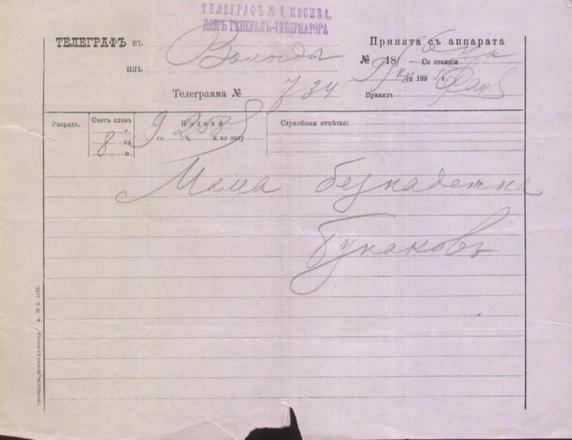 ТЕЛЕГРАФЪ № 1, МОСКВА.
ДОМЪ ГЕНЕРАЛЪ-ГУБЕРНАТОРА
ТЕЛЕГРАФЪ въ
изъ Вологда
Телеграмма № 734
Принята съ аппарата
№ 18
Со станціи
го 189 г.
Принялъ
Разрядъ.
Счетъ словъ
8
г.
сл.
ш.
Подана
9 го 2 ч. 58 м. по полу
Служебныя отмѣтки:
Мама безнадежна
Бунаковъ